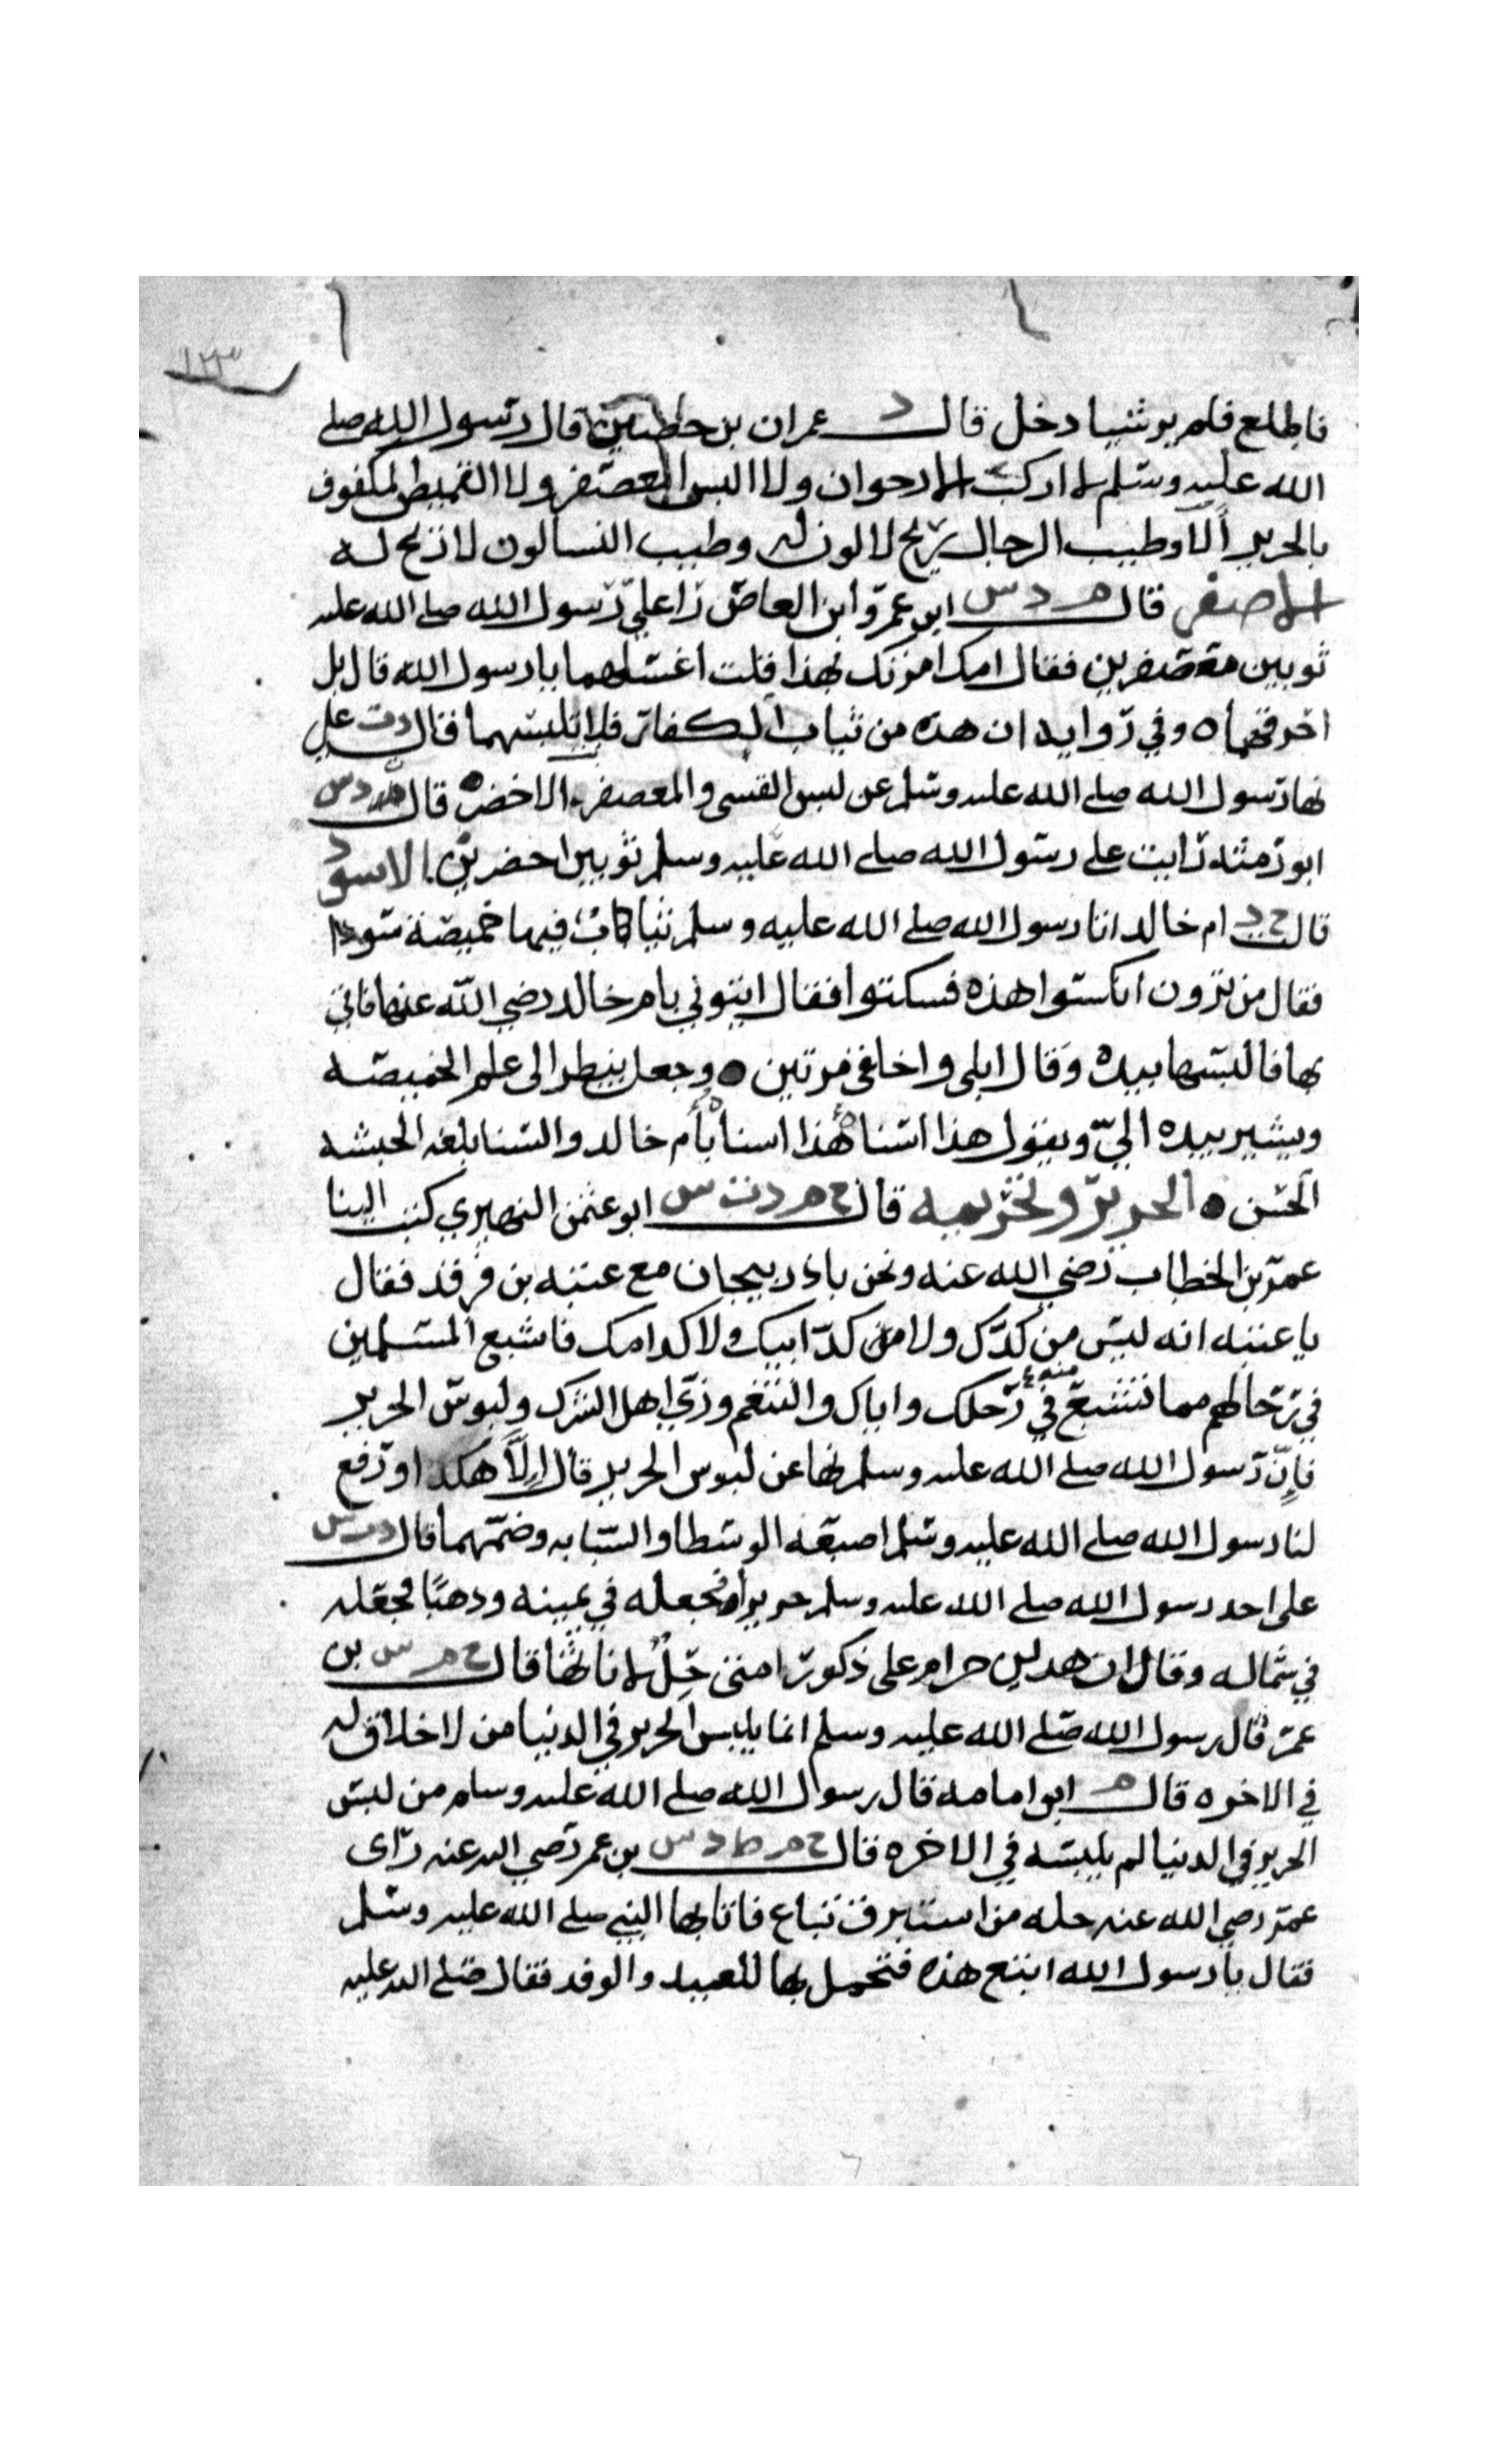 ١٢٣
فاطلع فلم ير شيا دخل قال د عمران بن حصين قال رسول الله صلى
الله عليه وسلم لا اركب الارجوان ولا البس المعصفر ولا القميص المكفوف
بالحرير ألا وطيب الرجال ريح لا لون له وطيب النسا لون لا ريح له
الاصفر قال م د س ابن عمرو ابن العاص راعلي رسول الله صلى الله عليه
ثوبين معصفرين فقال امك امرتك بهذا قلت اغسلهما يا رسول الله قال بل
احرقهما ه وفي رواية ان هذه من ثياب الكفار فلا تلبسهما قال د ت علي
نها رسول الله صلى الله عليه وسلم عن لبس القسي والمعصفر الاخضر ه قال د س
ابو رمثة رايت على رسول الله صلى الله عليه وسلم ثوبين اخضرين الاسود
قال خ د ام خالد اتا رسول الله صلى الله عليه وسلم ثيابا فيها خميصة سودا
فقال من ترون اكسوا هذه فسكتوا فقال ايتوني بام خالد رضي الله عنها فاتي
بها فالبسها بيده وقال ابلي واخلقي مرتين ه وجعل ينظر الى علم الخميصة
ويشير بيده اليّ ويقول هذا سنا يا أم خالد والسنا بلغة الحبشه
الحسن ه الحرير وتحريمه قال خ م د ت س ابو عثمن النهدي كتب الينا
عمر بن الخطاب رضي الله عنه ونحن باذربيجان مع عتبه بن فرقد فقال
يا عتبه انه ليس من كدّك ولا من كدّ ابيك ولا كد امك فاشبع المسلمين
في رحالهم مما تشبع منه في رحلك واياك والتنعم وزيّ اهل الشرك ولبوس الحرير
فإنّ رسول الله صلى الله عليه وسلم نها عن لبوس الحرير قال إلاّ هكذا ورفع
لنا رسول الله صلى الله عليه وسلم اصبعه الوسطا والسبابه وضمهما قال د س
علي اخد رسول الله صلى الله عليه وسلم حريرا فجعله في يمينه ودهبًا فجعله
في شماله وقال ان هدين حرام على ذكور امتي حِلٌّ لاناثها قال خ م س بن
عمر قال رسول الله صلى الله عليه وسلم انما يلبس الحرير في الدنيا من لا خلاق له
في الاخره قال م ابو امامه قال رسول الله صلى الله عليه وسلم من لبس
الحرير في الدنيا لم يلبسه في الاخره قال خ م ط د س بن عمر رضي الله عنه رأى
عمر رضي الله عنه حله من استبرق تباع فاتا بها النبي صلى الله عليه وسلم
فقال يا رسول الله ابتع هذه فتجمل بها للعيد والوفد فقال صلى الله عليه